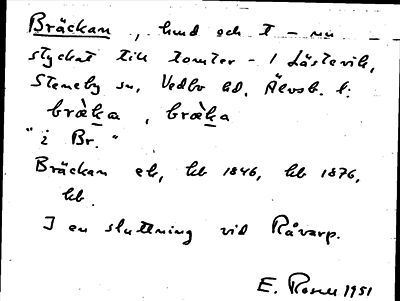 Bräckan, hmd och t - nu
styckat till tomter - i Låstevik,
Steneby sn, Vedbo hd, Älvsb. l:
bræ̀ka, bræ̀ka
"i Br."
Bräckan ek, kb 1846, kb 1876,
kb.
I en sluttning vid Råvarp.
E. Rosell 1951